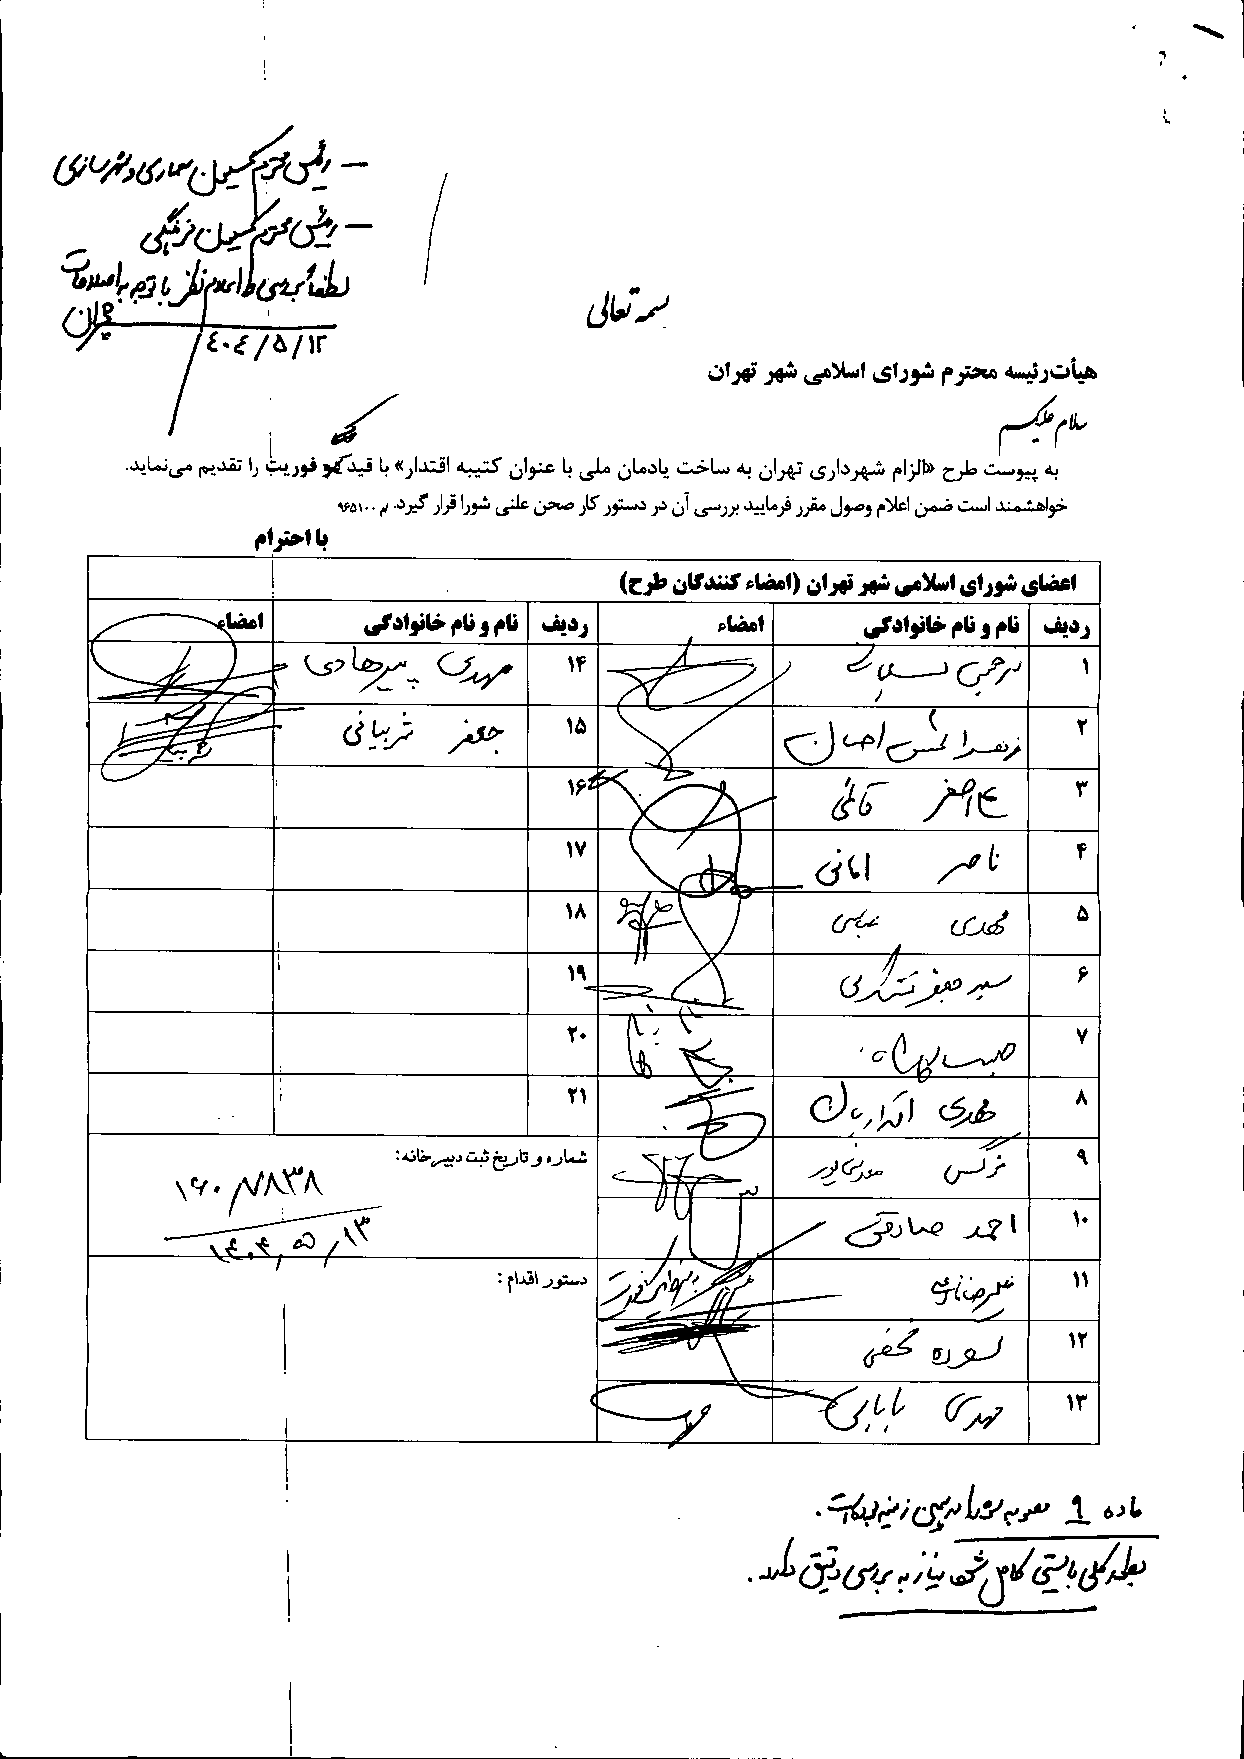 - رئیس محترم کمیسیون معماری و شهرسازی
- رئیس محترم کمیسیون فرهنگی
لطفاً بررسی و اعلام نظر با توجه به اصلاحات
چمران
۴۰۴/۵/۱۲
بسمه تعالی
هیأت‌رئیسه محترم شورای اسلامی شهر تهران
سلام علیکم
به پیوست طرح «الزام شهرداری تهران به ساخت یادمان ملی با عنوان کتیبه اقتدار» با قید فوریت را تقدیم می‌نماید.
خواهشمند است ضمن اعلام وصول مقرر فرمایید بررسی آن در دستور کار صحن علنی شورا قرار گیرد. م ۹۶۵۱۰۰
با احترام
اعضای شورای اسلامی شهر تهران (امضاء کنندگان طرح)
ردیف نام و نام خانوادگی امضاء ردیف نام و نام خانوادگی امضاء
۱ نرجس سلیمانی ۱۴ مهدی پیرهادی
۲ زهرا شمس احسان ۱۵ جعفر شربیانی
۳ علی اصغر قائمی ۱۶
۴ ناصر امانی ۱۷
۵ مهدی عباسی ۱۸
۶ سید جعفر تشکری ۱۹
۷ حبیب کاشانی ۲۰
۸ مهدی اقراریان ۲۱
۹ نرگس معدنی پور شماره و تاریخ ثبت دبیرخانه:
۱۶۰/۷۸۳۸
۱۴۰۴/۵/۱۳
۱۰ احمد صادقی
۱۱ علیرضا نادعلی دستور اقدام :
۱۲ سوده نجفی
۱۳ مهدی بابایی
ماده ۹ مصوبه شورا در همین زمینه
بطور کلی بایستی کامل شود نیاز به بررسی دقیق دارد.